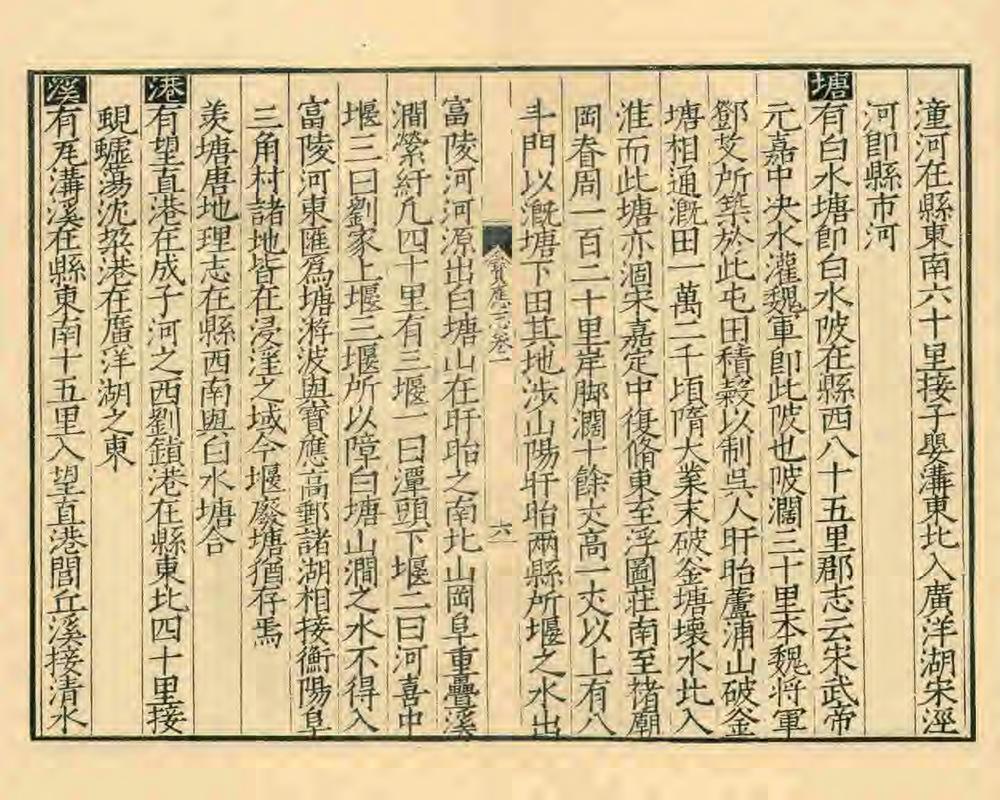 潼河在縣東南六十里接子嬰溝東北入廣洋湖宋涇
河卽縣市河
塘有白水塘卽白水陂在縣西八十五里郡志云宋武帝
元嘉中决水灌魏軍卽此陂也陂濶三十里本魏將軍
鄧艾所築於此屯田積穀以制吳人盱眙蘆浦山破釜
塘相通漑田一萬二千頃隋大業末破釜塘壞水北入
淮而此塘亦涸宋嘉定中復脩東至浮圖莊南至褚廟
岡眷周一百二十里岸脚濶十餘丈高一丈以上有八
斗門以漑塘下田其地涉山陽盱眙兩縣所堰之水出
寶應志卷一
六
富陵河河源出白塘山在盱眙之南北山岡阜重疊溪
澗縈紆凡四十里有三堰一曰潭頭下堰二曰河喜中
堰三曰劉家上堰三堰所以障白塘山澗之水不得入
富陵河東匯爲塘游波與寶應高郵諸湖相接衡陽阜
三角村諸地皆在浸淫之域今堰廢塘猶存焉
羨塘唐地理志在縣西南與白水塘合
港有望直港在成子河之西劉鎖港在縣東北四十里接
蜆墟蕩沈垜港在廣洋湖之東
溪有瓦溝溪在縣東南十五里入望直港閭丘溪接清水